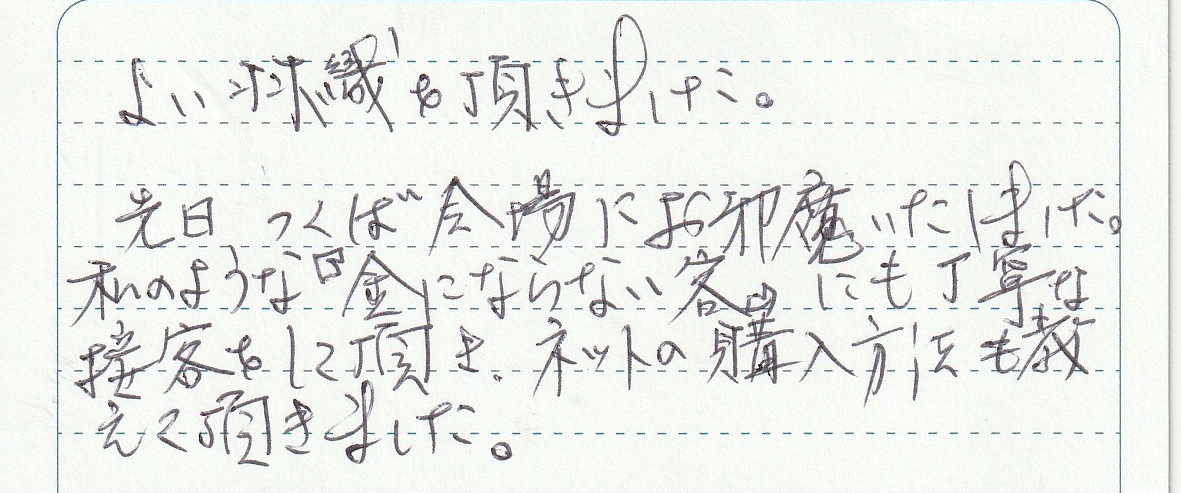 よい球織を頂きました。
先日、つくば会場にお邪魔いたしました。
私のような『金にならない客』にも丁寧な
接客をして頂き、ネットの購入方法も教
えて頂きました。